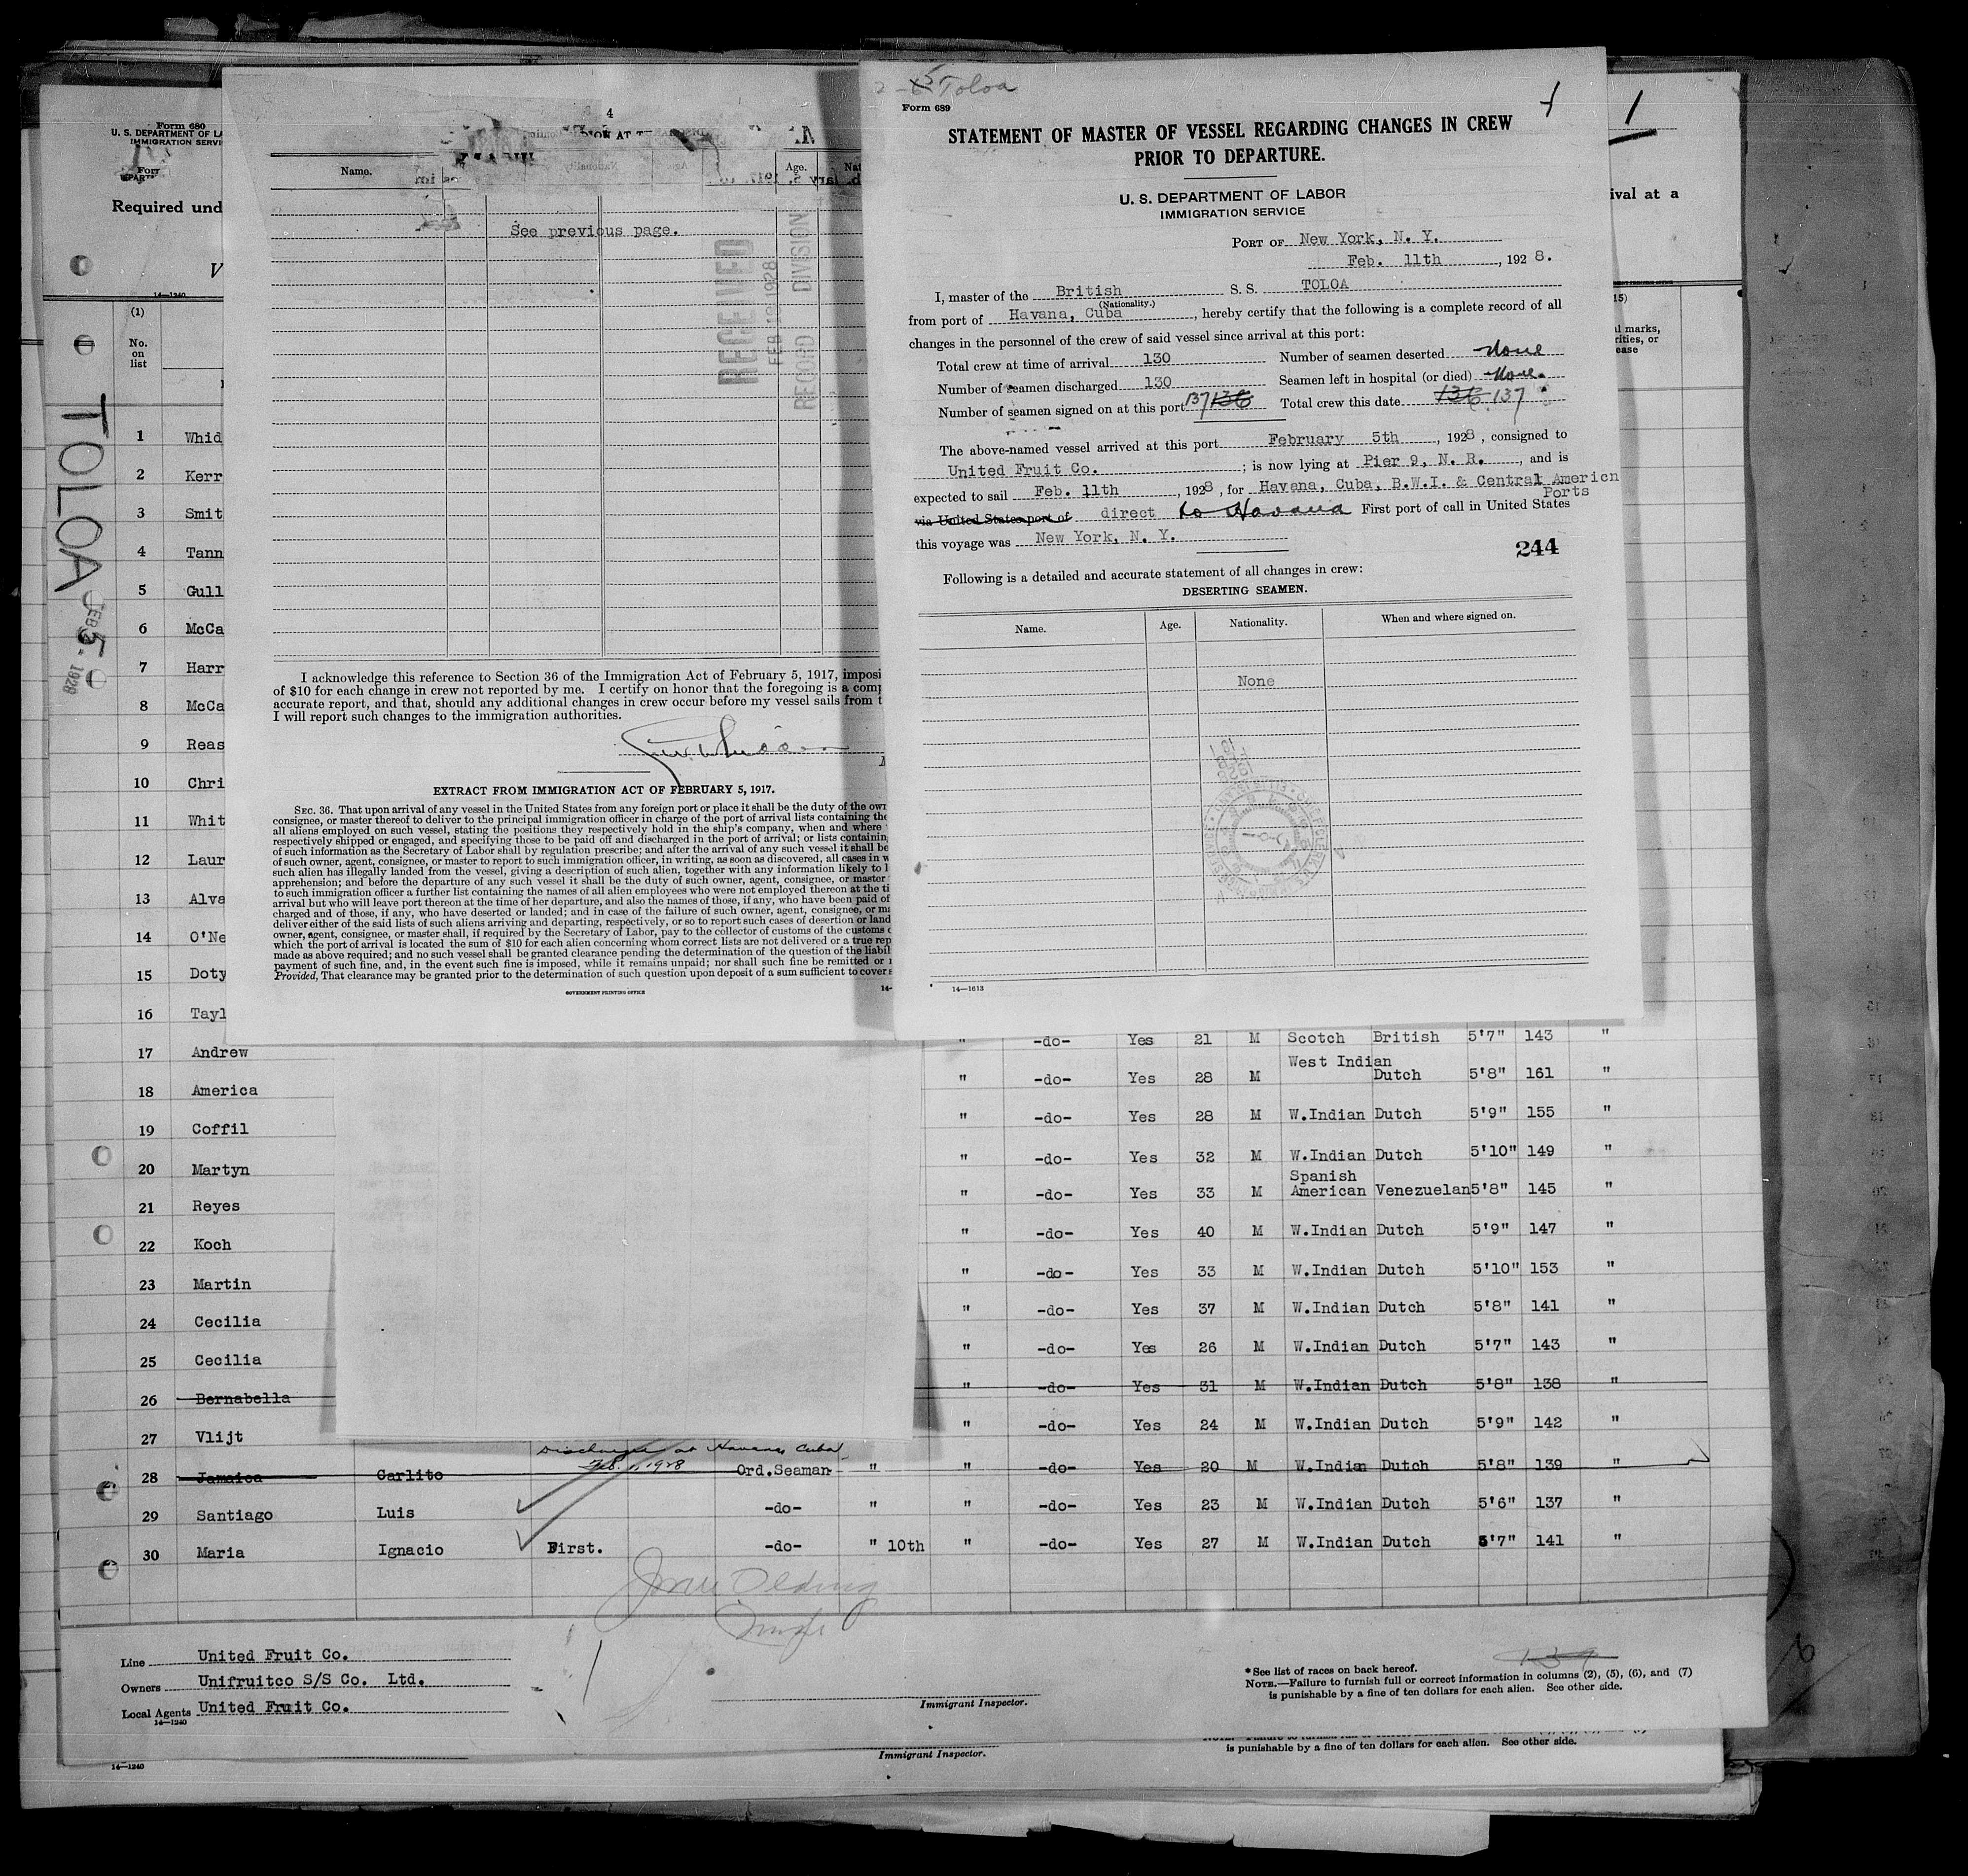 Form 680
U. S. DEPARTMENT OF LA
IMMIGRATION SERVI
Required und
V
14—1240
(1)
No.
on
list
TOLOA
FEB 5 - 1928
1 Whid
2 Kerr
3 Smit
4 Tann
5 Gull
6 McCa
7 Harr
8 McCa
9 Reas
10 Chri
11 Whit
12 Laur
13 Alva
14 O'Ne
15 Doty
16 Tayl
4
Name.
Age.
Nat
See previous page.
RECEIVED
FEB 19 1928
RECORD DIVISION
I acknowledge this reference to Section 36 of the Immigration Act of February 5, 1917, imposi
of $10 for each change in crew not reported by me. I certify on honor that the foregoing is a comp
accurate report, and that, should any additional changes in crew occur before my vessel sails from t
I will report such changes to the immigration authorities.
EXTRACT FROM IMMIGRATION ACT OF FEBRUARY 5, 1917.
SEC. 36. That upon arrival of any vessel in the United States from any foreign port or place it shall be the duty of the own
consignee, or master thereof to deliver to the principal immigration officer in charge of the port of arrival lists containing the
all aliens employed on such vessel, stating the positions they respectively hold in the ship's company, when and where
respectively shipped or engaged, and specifying those to be paid off and discharged in the port of arrival; or lists containin
of such information as the Secretary of Labor shall by regulation prescribe; and after the arrival of any such vessel it shall be
of such owner, agent, consignee, or master to report to such immigration officer, in writing, as soon as discovered, all cases in w
such alien has illegally landed from the vessel, giving a description of such alien, together with any information likely to l
apprehension; and before the departure of any such vessel it shall be the duty of such owner, agent, consignee, or master
to such immigration officer a further list containing the names of all alien employees who were not employed thereon at the ti
arrival but who will leave port thereon at the time of her departure, and also the names of those, if any, who have been paid of
charged and of those, if any, who have deserted or landed; and in case of the failure of such owner, agent, consignee, or ma
deliver either of the said lists of such aliens arriving and departing, respectively, or so to report such cases of desertion or land
owner, agent, consignee, or master shall, if required by the Secretary of Labor, pay to the collector of customs of the customs d
which the port of arrival is located the sum of $10 for each alien concerning whom correct lists are not delivered or a true rep
made as above required; and no such vessel shall be granted clearance pending the determination of the question of the liabil
payment of such fine, and, in the event such fine is imposed, while it remains unpaid; nor shall such fine be remitted or r
Provided, That clearance may be granted prior to the determination of such question upon deposit of a sum sufficient to cover s
GOVERNMENT PRINTING OFFICE
14-
Toloa
Form 689
STATEMENT OF MASTER OF VESSEL REGARDING CHANGES IN CREW
PRIOR TO DEPARTURE.
U. S. DEPARTMENT OF LABOR
IMMIGRATION SERVICE
PORT OF New York, N. Y.
Feb. 11th, 1928.
I, master of the British S. S. TOLOA
(Nationality.)
from port of Havana, Cuba, hereby certify that the following is a complete record of all
changes in the personnel of the crew of said vessel since arrival at this port:
Total crew at time of arrival 130 Number of seamen deserted None
Number of seamen discharged 130 Seamen left in hospital (or died) None.
Number of seamen signed on at this port 137 136 Total crew this date 136 137
The above-named vessel arrived at this port February 5th, 1928, consigned to
United Fruit Co.; is now lying at Pier 9, N. R., and is
expected to sail Feb. 11th, 1928, for Havana, Cuba, B.W.I. & Central Americn
Ports
via United States port of direct to Havana First port of call in United States
this voyage was New York, N. Y.
244
Following is a detailed and accurate statement of all changes in crew:
DESERTING SEAMEN.
Name. Age. Nationality. When and where signed on.
None
14—1613
1
ival at a
15)
l marks,
rities, or
ease
" -do- Yes 21 M Scotch British 5'7" 143 "
17 Andrew " -do- Yes 28 M West Indian Dutch 5'8" 161 "
18 America " -do- Yes 28 M W.Indian Dutch 5'9" 155 "
19 Coffil " -do- Yes 32 M W.Indian Dutch 5'10" 149 "
20 Martyn " -do- Yes 33 M Spanish American Venezuelan 5'8" 145 "
21 Reyes " -do- Yes 40 M W.Indian Dutch 5'9" 147 "
22 Koch " -do- Yes 33 M W.Indian Dutch 5'10" 153 "
23 Martin " -do- Yes 37 M W.Indian Dutch 5'8" 141 "
24 Cecilia " -do- Yes 26 M W.Indian Dutch 5'7" 143 "
25 Cecilia " -do- Yes 31 M W.Indian Dutch 5'8" 138 "
26 Bernabella " -do- Yes 24 M W.Indian Dutch 5'9" 142 "
27 Vlijt
Discharged at Havana Cuba
1928
28 Jamaica Carlito Ord.Seaman " " -do- Yes 20 M W.Indian Dutch 5'8" 139 "
29 Santiago Luis -do- " " -do- Yes 23 M W.Indian Dutch 5'6" 137 "
30 Maria Ignacio First. -do- " 10th " -do- Yes 27 M W.Indian Dutch 5'7" 141 "
Line United Fruit Co.
Owners Unifruitco S/S Co. Ltd.
Local Agents United Fruit Co.
14—1240
Immigrant Inspector.
*See list of races on back hereof.
NOTE.—Failure to furnish full or correct information in columns (2), (5), (6), and (7)
is punishable by a fine of ten dollars for each alien. See other side.
Immigrant Inspector.
is punishable by a fine of ten dollars for each alien. See other side.
14—1240